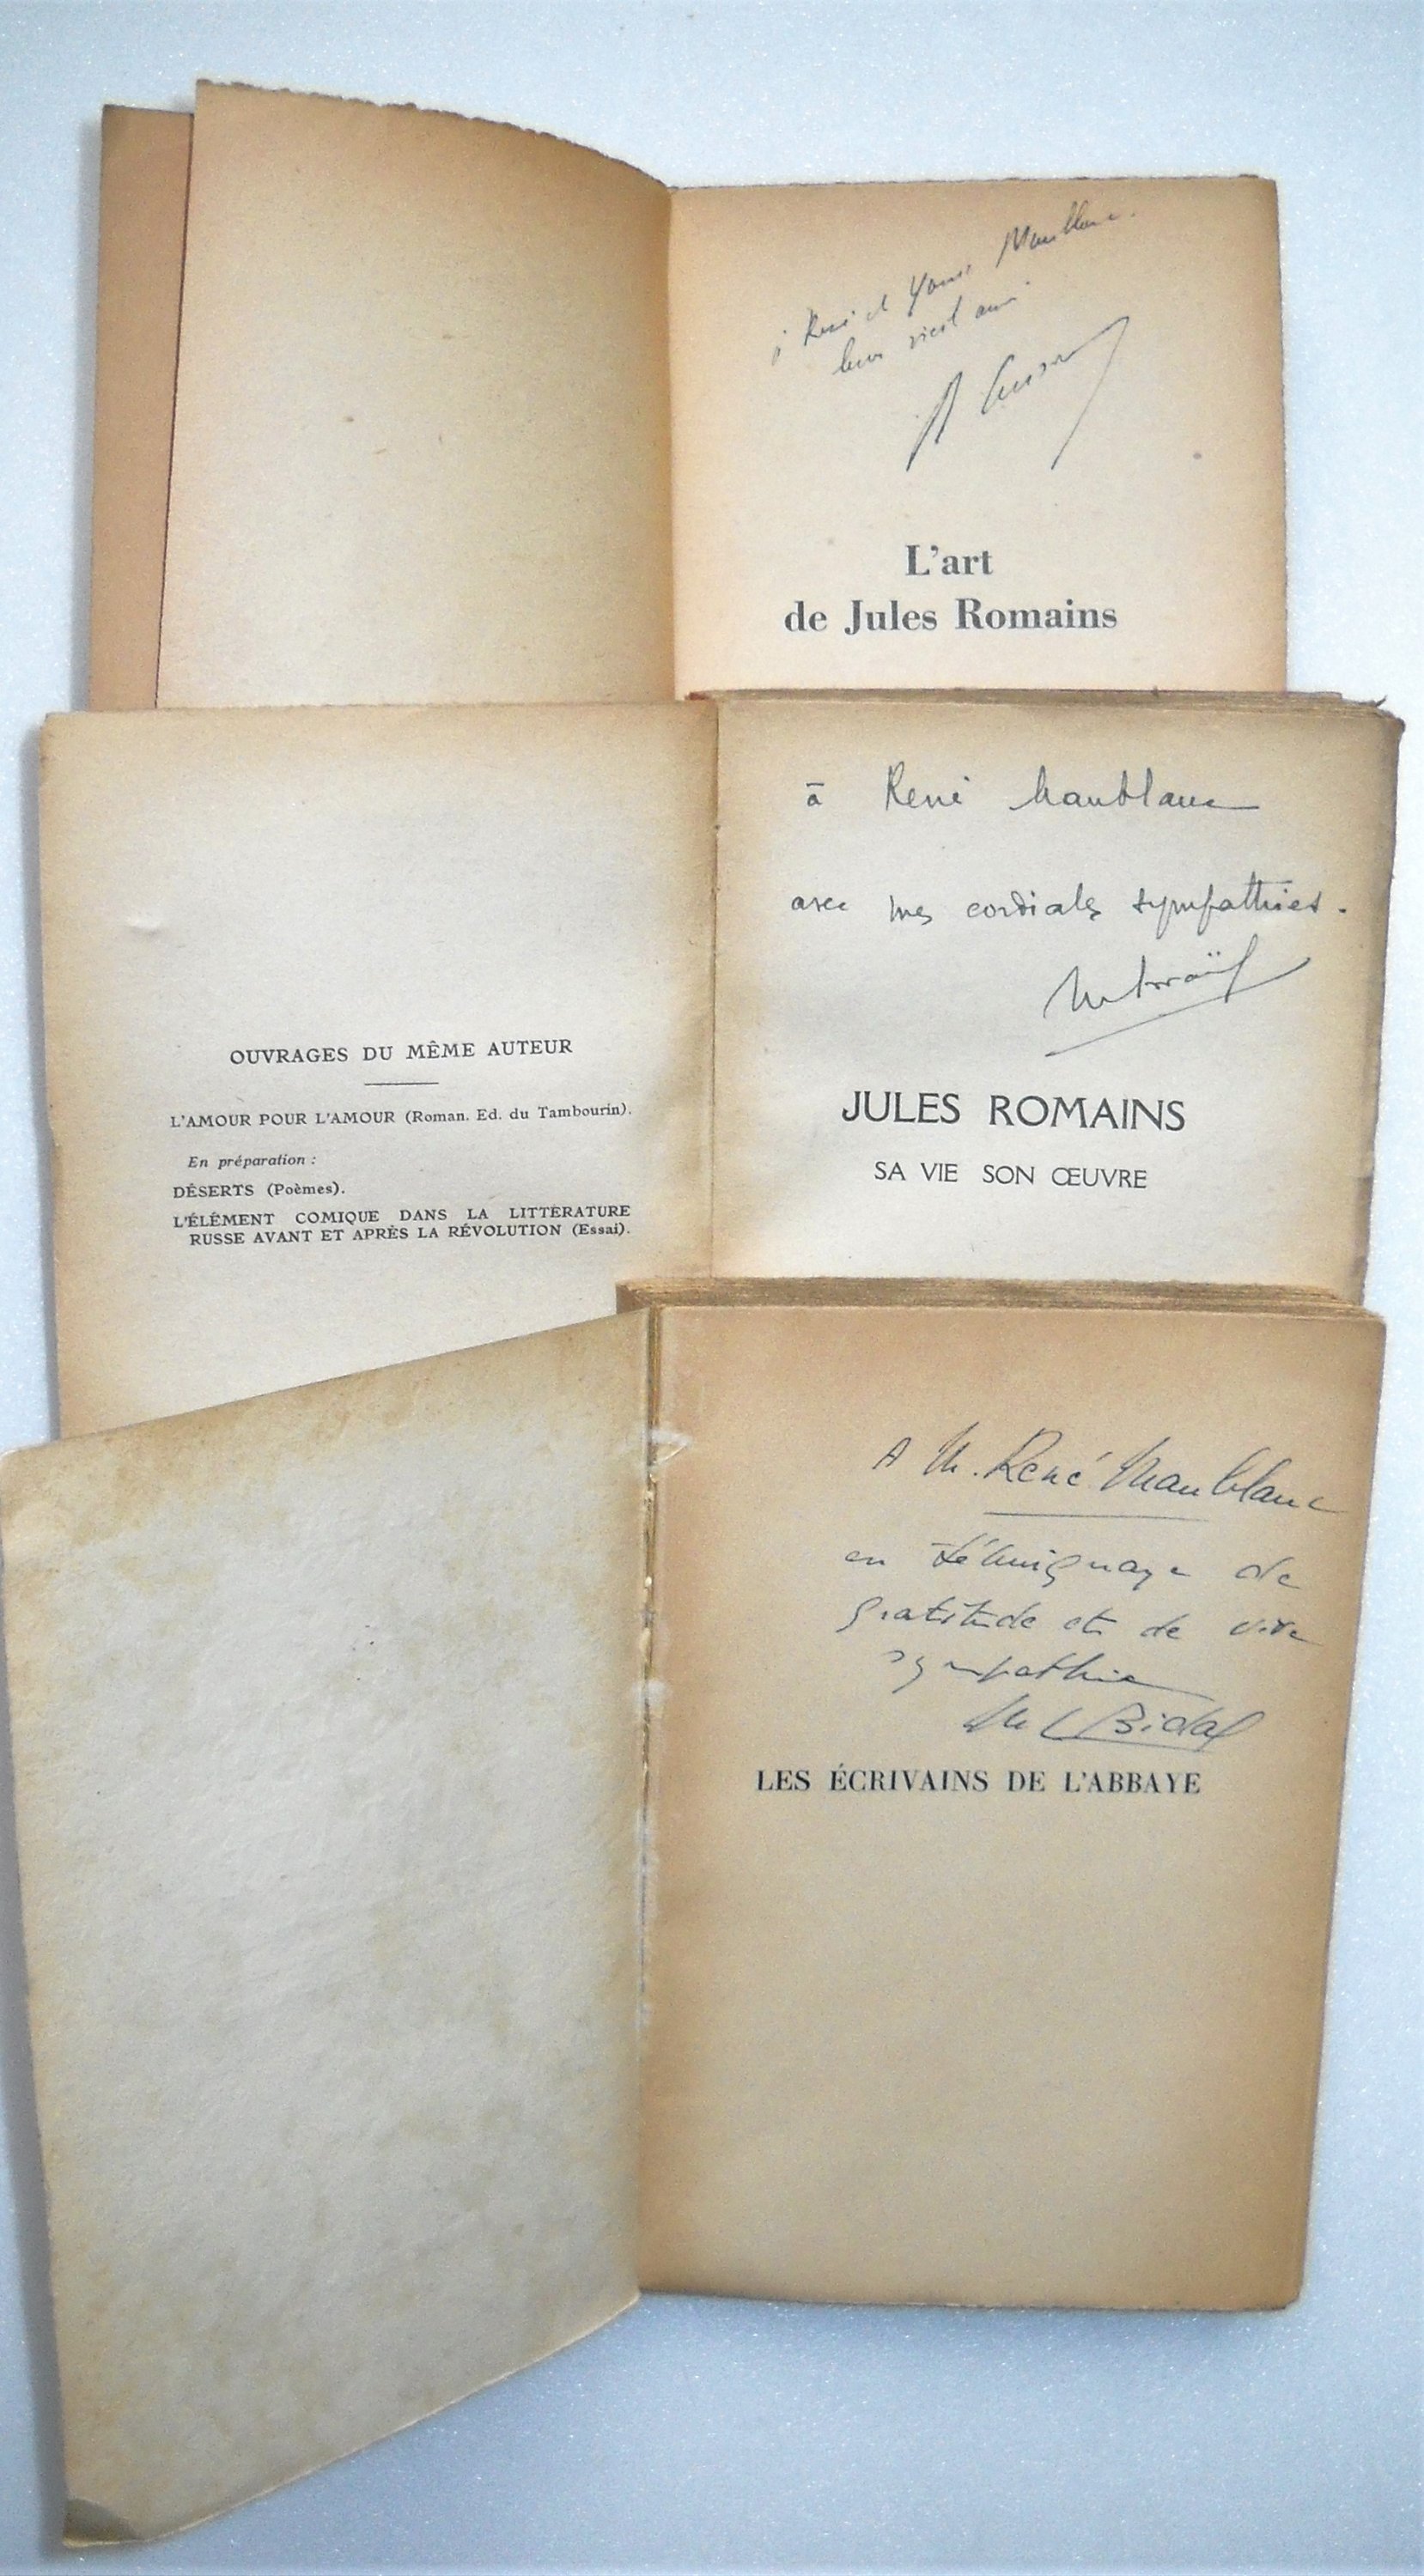 à René et Yonne Maublanc.
leur vieil ami
A Cuisenier
L'art
de Jules Romains
OUVRAGES DU MÊME AUTEUR
L'AMOUR POUR L'AMOUR (Roman. Ed. du Tambourin).
En préparation :
DÉSERTS (Poèmes).
L'ÉLÉMENT COMIQUE DANS LA LITTÉRATURE
RUSSE AVANT ET APRÈS LA RÉVOLUTION (Essai).
à René Maublanc
avec mes cordiales sympathies.
JULES ROMAINS
SA VIE SON ŒUVRE
A M. René Maublanc
en témoignage de
gratitude et de vive
sympathie
ML Bidal
LES ÉCRIVAINS DE L'ABBAYE